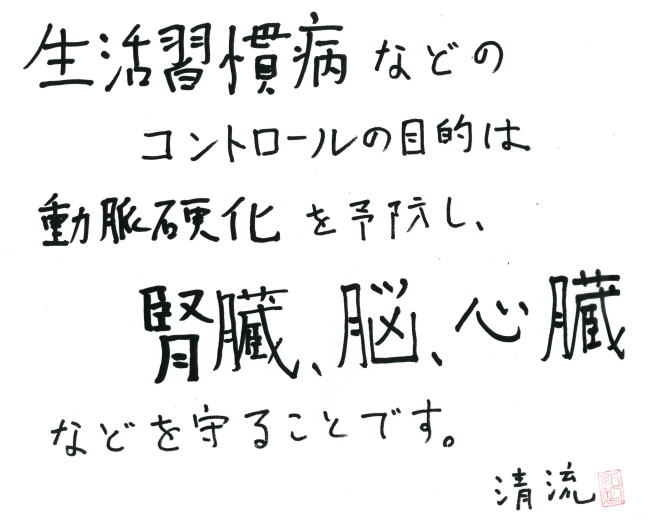 生活習慣病などの
コントロールの目的は
動脈硬化を予防し、
腎臓、脳、心臓
などを守ることです。
清流